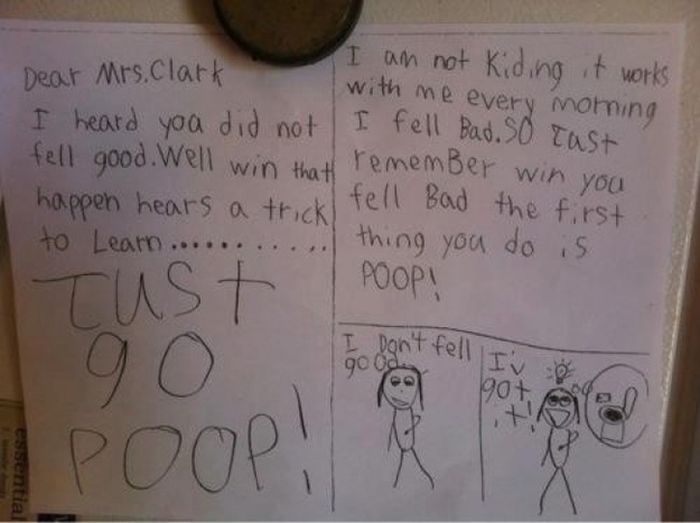 Dear Mrs.Clark
I heard you did not
fell good.Well win that
happen hears a trick
to Learn............
JUST
go
POOP!
I am not Kiding it works
with me every morning
I fell Bad.SO Just
rememBer win you
fell Bad the first
thing you do is
POOP!
I Don't fell
good
I'v
got
it!
essential